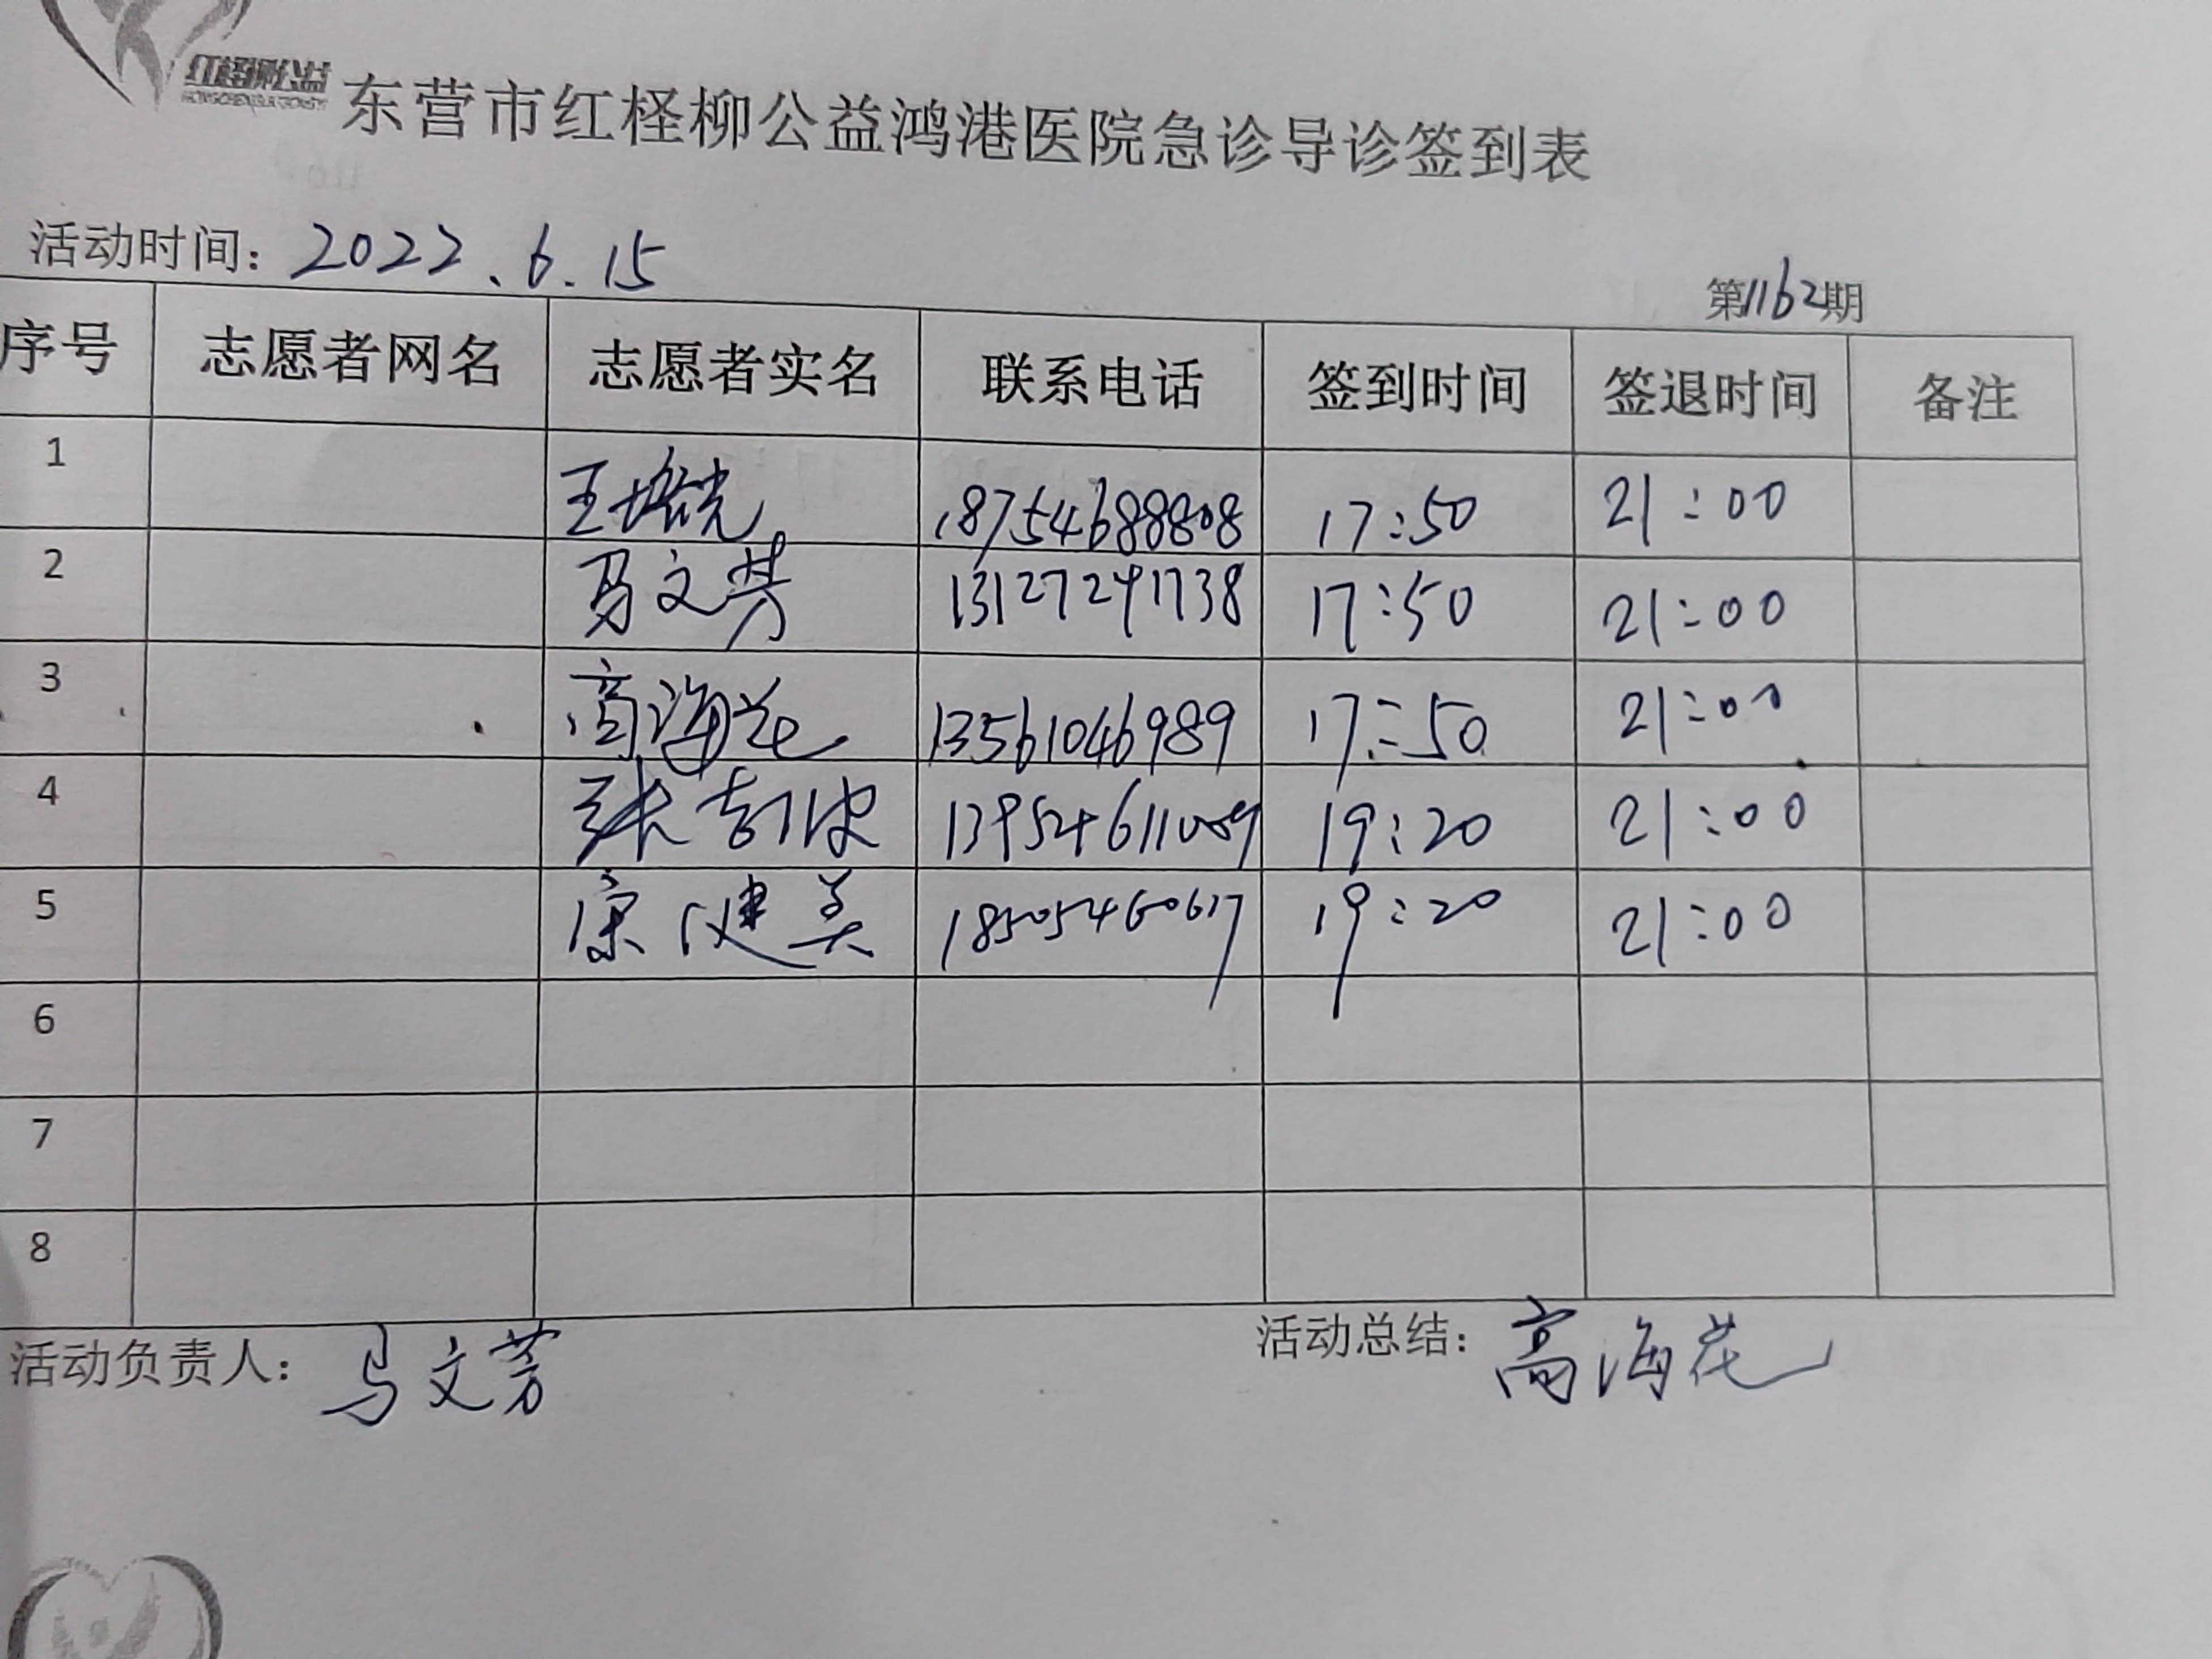 红柽柳公益
东营市红柽柳公益鸿港医院急诊导诊签到表
活动时间：2022.6.15
第1162期
序号 志愿者网名 志愿者实名 联系电话 签到时间 签退时间 备注
1 王培光 18754688808 17:50 21:00
2 马文芳 13127291738 17:50 21:00
3 高海花 13561046989 17:50 21:00
4 张 13954611089 19:20 21:00
5 康健美 18505460617 19:20 21:00
6
7
8
活动负责人：马文芳 活动总结：高海花